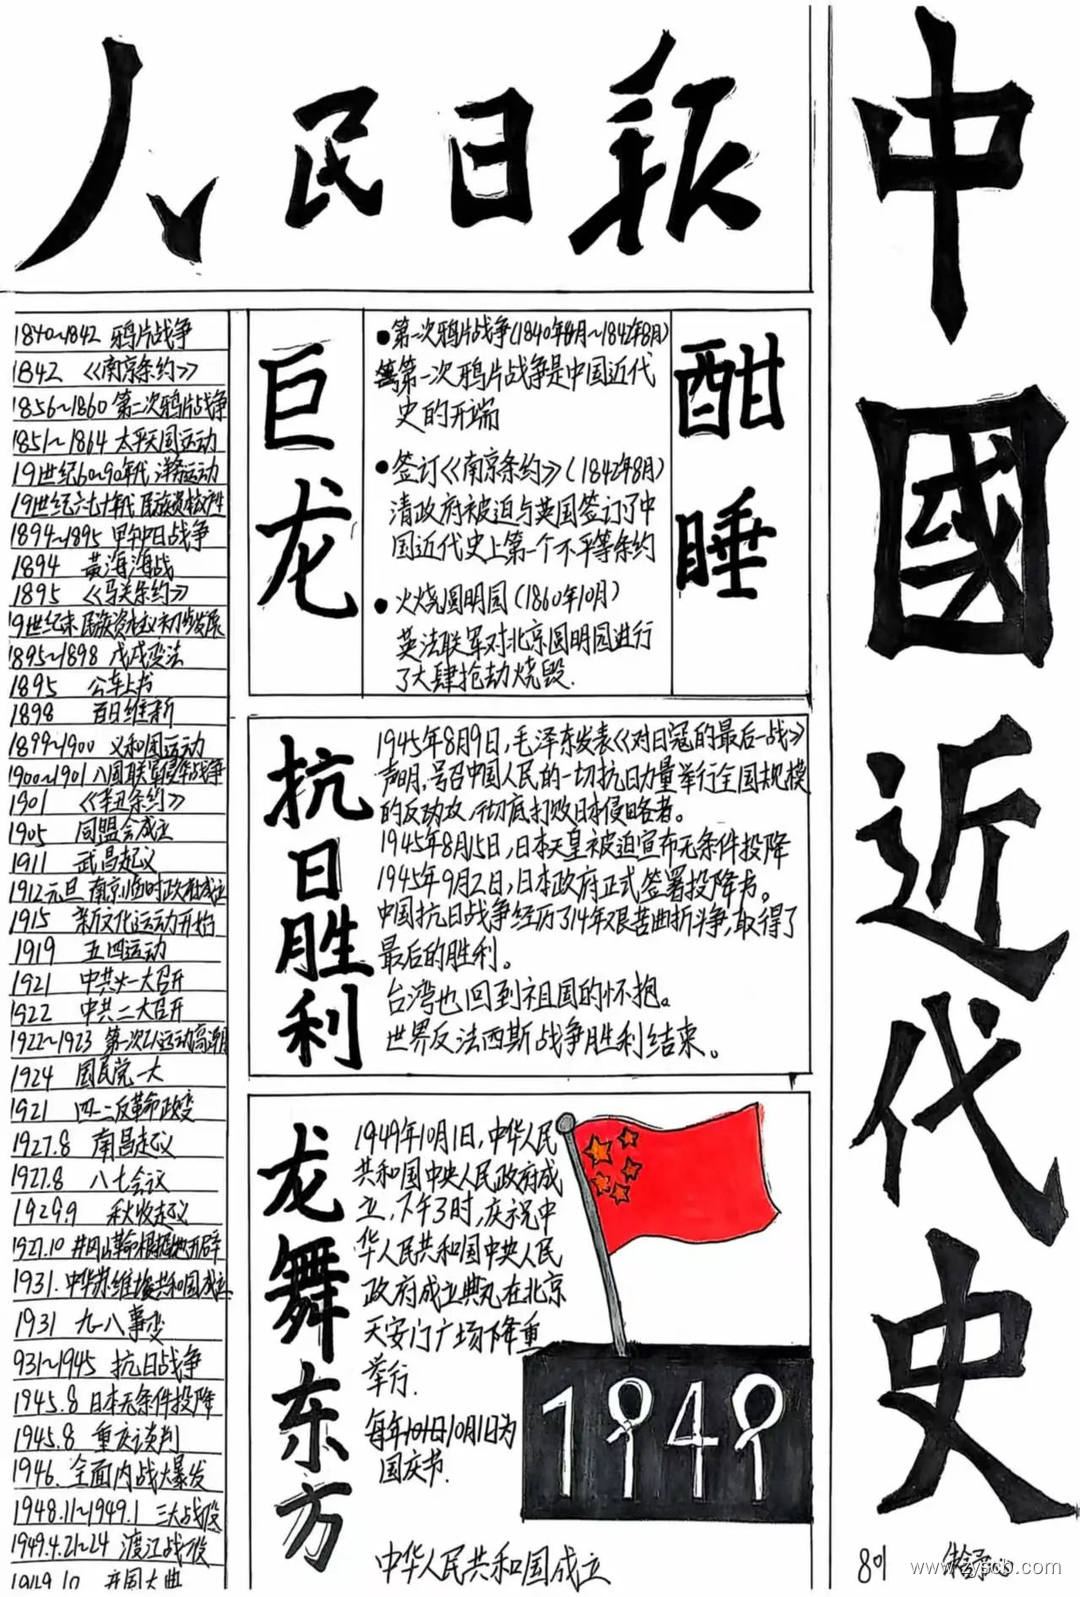 人民日报
中國近代史
1840~1842 鸦片战争
1842 《南京条约》
1856~1860 第二次鸦片战争
1851~1864 太平天国运动
19世纪60~90年代 洋务运动
19世纪六七十年代 民族资本产生
1894~1895 甲午中日战争
1894 黄海海战
1895 《马关条约》
19世纪末 民族资本主义初步发展
1895~1898 戊戌变法
1895 公车上书
1898 百日维新
1899~1900 义和团运动
1900~1901 八国联军侵华战争
1901 《辛丑条约》
1905 同盟会成立
1911 武昌起义
1912元旦 南京临时政府成立
1915 新文化运动开始
1919 五四运动
1921 中共一大召开
1922 中共二大召开
1922~1923 第一次工运动高潮
1924 国民党一大
1921 四一二反革命政变
1927.8 南昌起义
1927.8 八七会议
1929.9 秋收起义
1927.10 井冈山革命根据地开辟
1931. 中华苏维埃共和国成立
1931 九一八事变
931~1945 抗日战争
1945.8 日本无条件投降
1945.8 重庆谈判
1946. 全面内战大爆发
1948.11~1949.1 三大战役
1949.4.21~24 渡江战役
1949.10 开国大典
巨龙
酣睡
●第一次鸦片战争(1840年6月~1842年8月)
第一次鸦片战争是中国近代
史的开端
●签订《南京条约》(1842年8月)
清政府被迫与英国签订了中
国近代史上第一个不平等条约
●火烧圆明园(1860年10月)
英法联军对北京圆明园进行
了大肆抢劫烧毁.
抗日胜利
1945年8月9日,毛泽东发表《对日寇的最后一战》
声明,号召中国人民的一切抗日力量举行全国规模
的反动攻,彻底打败日本侵略者。
1945年8月15日,日本天皇被迫宣布无条件投降
1945年9月2日,日本政府正式签署投降书。
中国抗日战争经历了14年艰苦曲折斗争,取得了
最后的胜利。
台湾也回到祖国的怀抱。
世界反法西斯战争胜利结束。
龙舞东方
1949年10月1日,中华人民
共和国中央人民政府成
立.下午3时,庆祝中
华人民共和国中央人民
政府成立典丸在北京
天安门广场下隆重
举行.
每年10月1日为
国庆节.
1949
中华人民共和国成立
801
www.zyscb.com